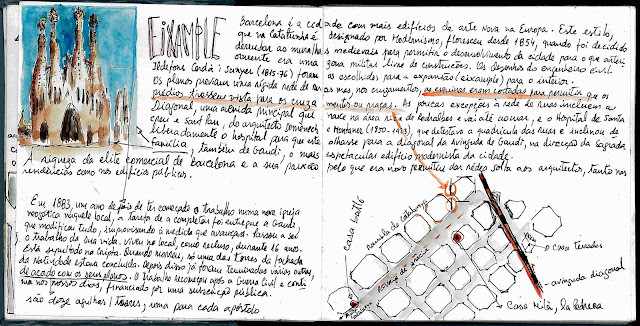 EIXAMPLE
barcelona é a cidade com mais edifícios de arte nova na Europa. Este estilo,
que na Catalunha é designado por Modernismo, floresceu desde 1854, quando foi decidido
derrubar as muralhas medievais para permitir o desenvolvimento da cidade para o que
omente era uma zona militar livre de construções. Os desenhos do engenheiro civil
Ildefons Cerdà i Sunyer (1815-76) foram os escolhidos para a expansão (eixample) para o interior.
os planos previam uma rígida rede de ruas mas, nos cruzamentos, as esquinas eram cortadas para permitir que os
prédios tivessem vista para os cruzamentos ou praças. As poucas excepções à rede de ruas incluem a
Diagonal, uma avenida principal que nasce na área rica de Pedralbes e vai até ao mar, e o Hospital de Santa
creu e Sant Pau, do arquitecto Domènech i Montaner (1850-1923), que detestava a quadrícula das ruas e inclinou de
liberadamente o hospital para que este olhasse para a diagonal da Avinguda de Gaudí, na direcção da Sagrada
Família, também de Gaudí, o mais espetacular edifício modernista da cidade.
A riqueza da elite comercial de barcelona e a sua paixão pelo que era novo permitiu dar rédea solta aos arquitectos, tanto nas
residências como nos edifícios públicos.
Em 1883, um ano depois de ter começado o trabalho numa nova igreja
neogótica naquele local, a tarefa de a completar foi entregue a Gaudí
que modificou tudo, improvisando à medida que avançava. Passou a ser
o trabalho da sua vida. viveu no local, como recluso, durante 16 anos.
Está sepultado na cripta. Quando morreu, só uma das torres da fachada
da Natividade estava concluída. Depois disso já foram terminadas várias outras,
de acordo com os seus planos. O trabalho recomeçou após a Guerra Civil e conti
nua nos nossos dias, financiado por uma subscrição pública.
são doze agulhas/torres, uma para cada apóstolo
Casa batlló
Rambla de Catalunya
Passeig de Gràcia
Casa Terrades
avinguda diagonal
Casa Milà, la Pedrera